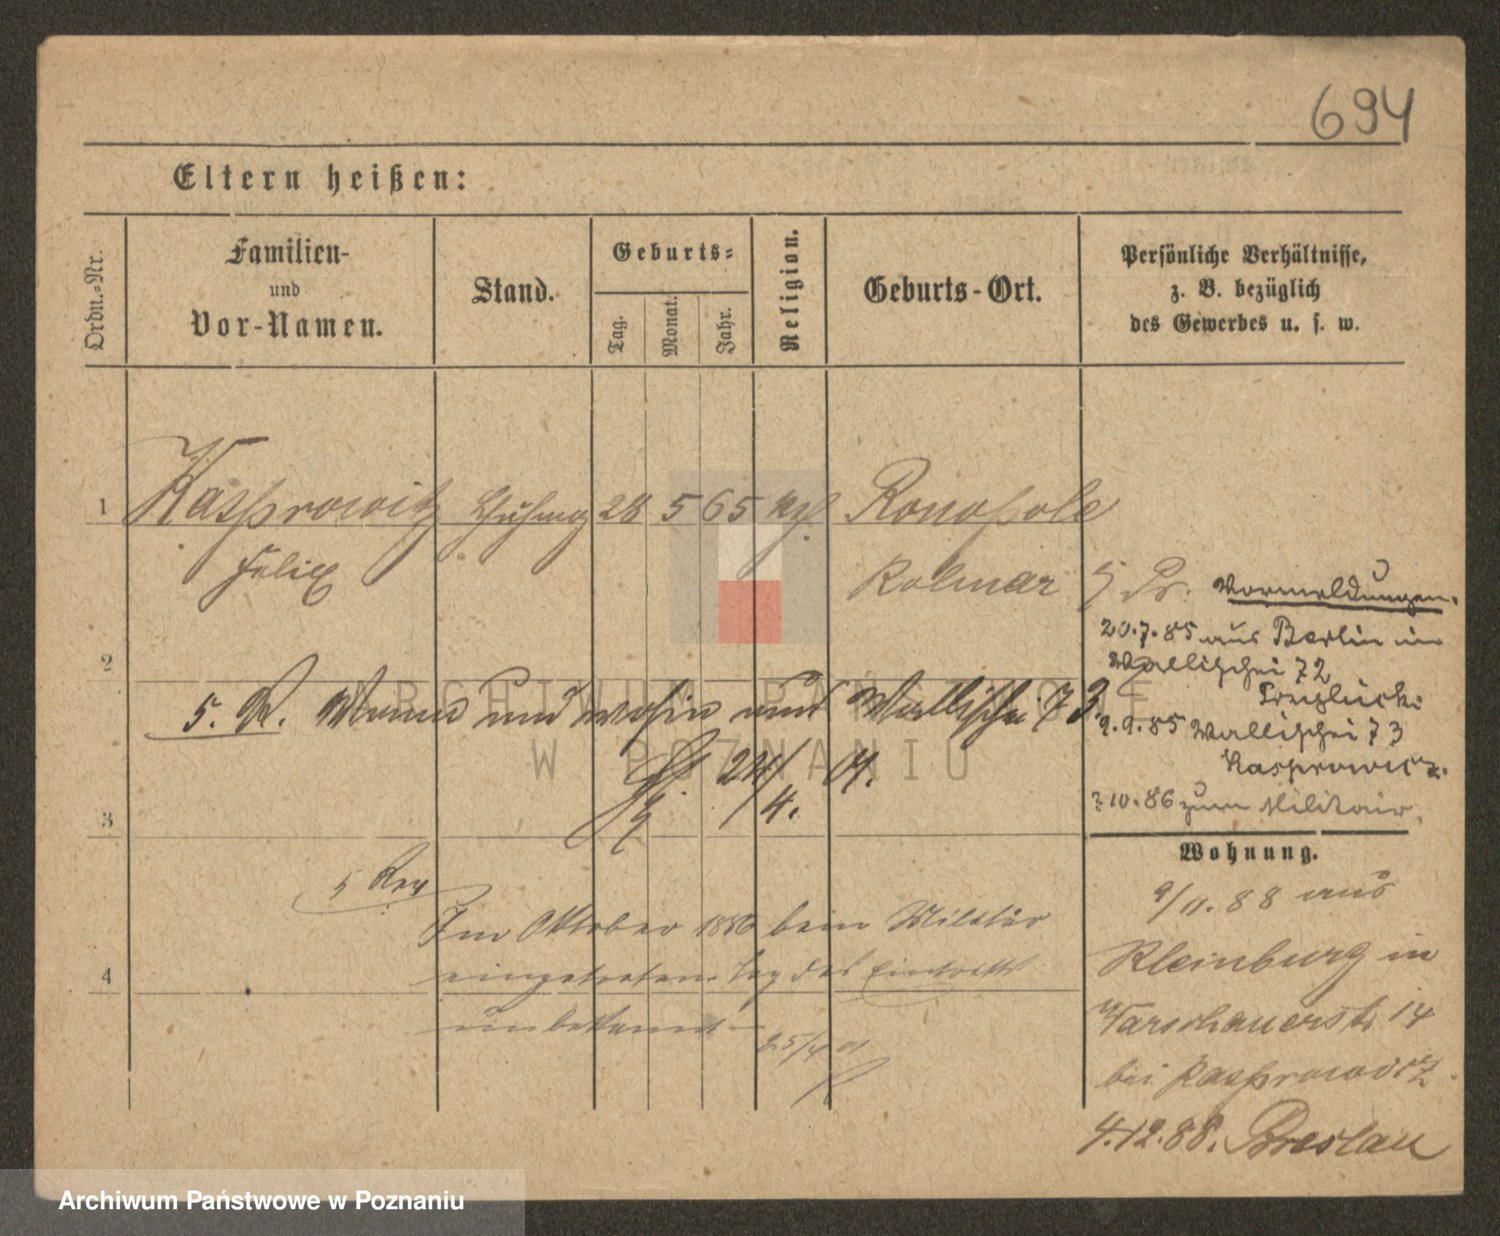 694
Eltern heißen:
Ordn.-Nr.
Familien-
und
Vor-Namen.
Stand.
Geburts-
Tag.
Monat.
Jahr.
Religion.
Geburts-Ort.
Persönliche Verhältnisse,
z. B. bezüglich
des Gewerbes u. s. w.
1 Kasprowitz 28 5 65 Ronopole
Felix Kolmar
Vormeldungen.
20.7.85 aus Berlin in
Wallischei 72
2
9.9.85 Wallischei 73
Kasprowicz.
5. R. Wann und wohin und Wallischei 73.
24/4. 01.
7.10.86 zum Militair.
3
Wohnung.
5 Rev
9/11.88 aus
Im Oktober 1886 beim Militär
Kleinburg in
4 eingetreten. Tag des Eintritts
Warschauerstr. 14
unbekannt
25/4 01
bei Kasprowitz
4.12.88. Breslau
ARCHIWUM PAŃSTWOWE
W POZNANIU
Archiwum Państwowe w Poznaniu